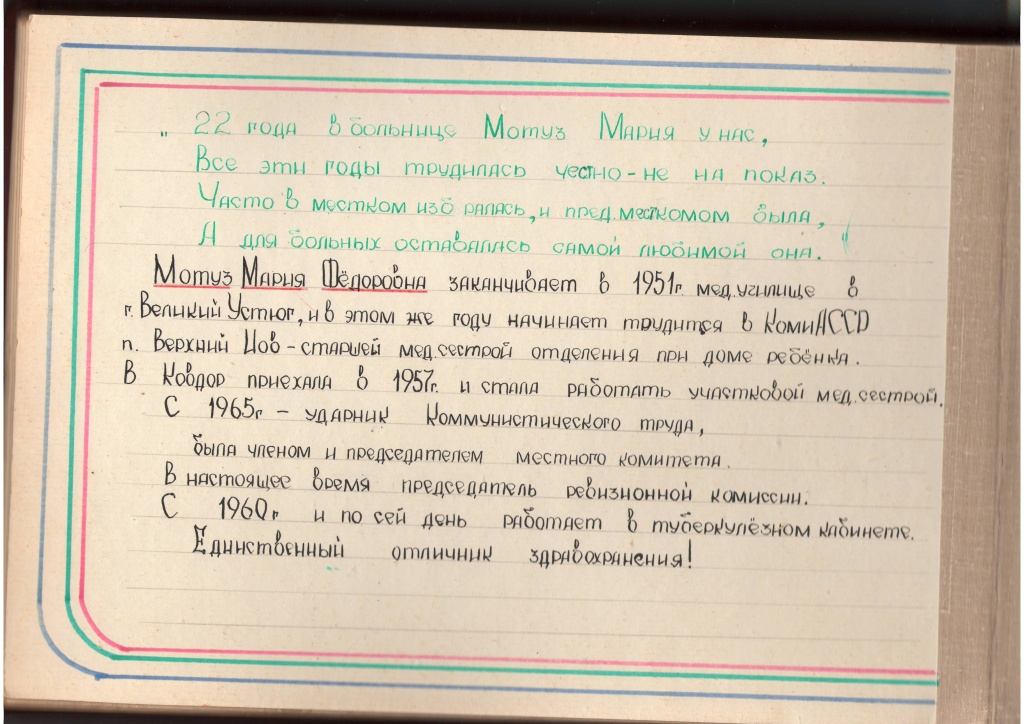 „ 22 года в больнице Мотуз Мария у нас,
Все эти годы трудилась честно - не на показ.
Часто в местком избралась, и пред.месткомом была,
А для больных оставалась самой любимой она. "
Мотуз Мария Фёдоровна заканчивает в 1951г. мед.училище в
г. Великий Устюг, и в этом же году начинает трудится в Коми АССР
п. Верхний Чов - старшей мед.сестрой отделения при доме ребёнка.
В Ковдор приехала в 1957г. и стала работать участковой мед.сестрой.
С 1965г - ударник Коммунистического труда,
была членом и председателем местного комитета.
В настоящее время председатель ревизионной комиссии.
С 1960г и по сей день работает в туберкулёзном кабинете.
Единственный отличник здравохранения!